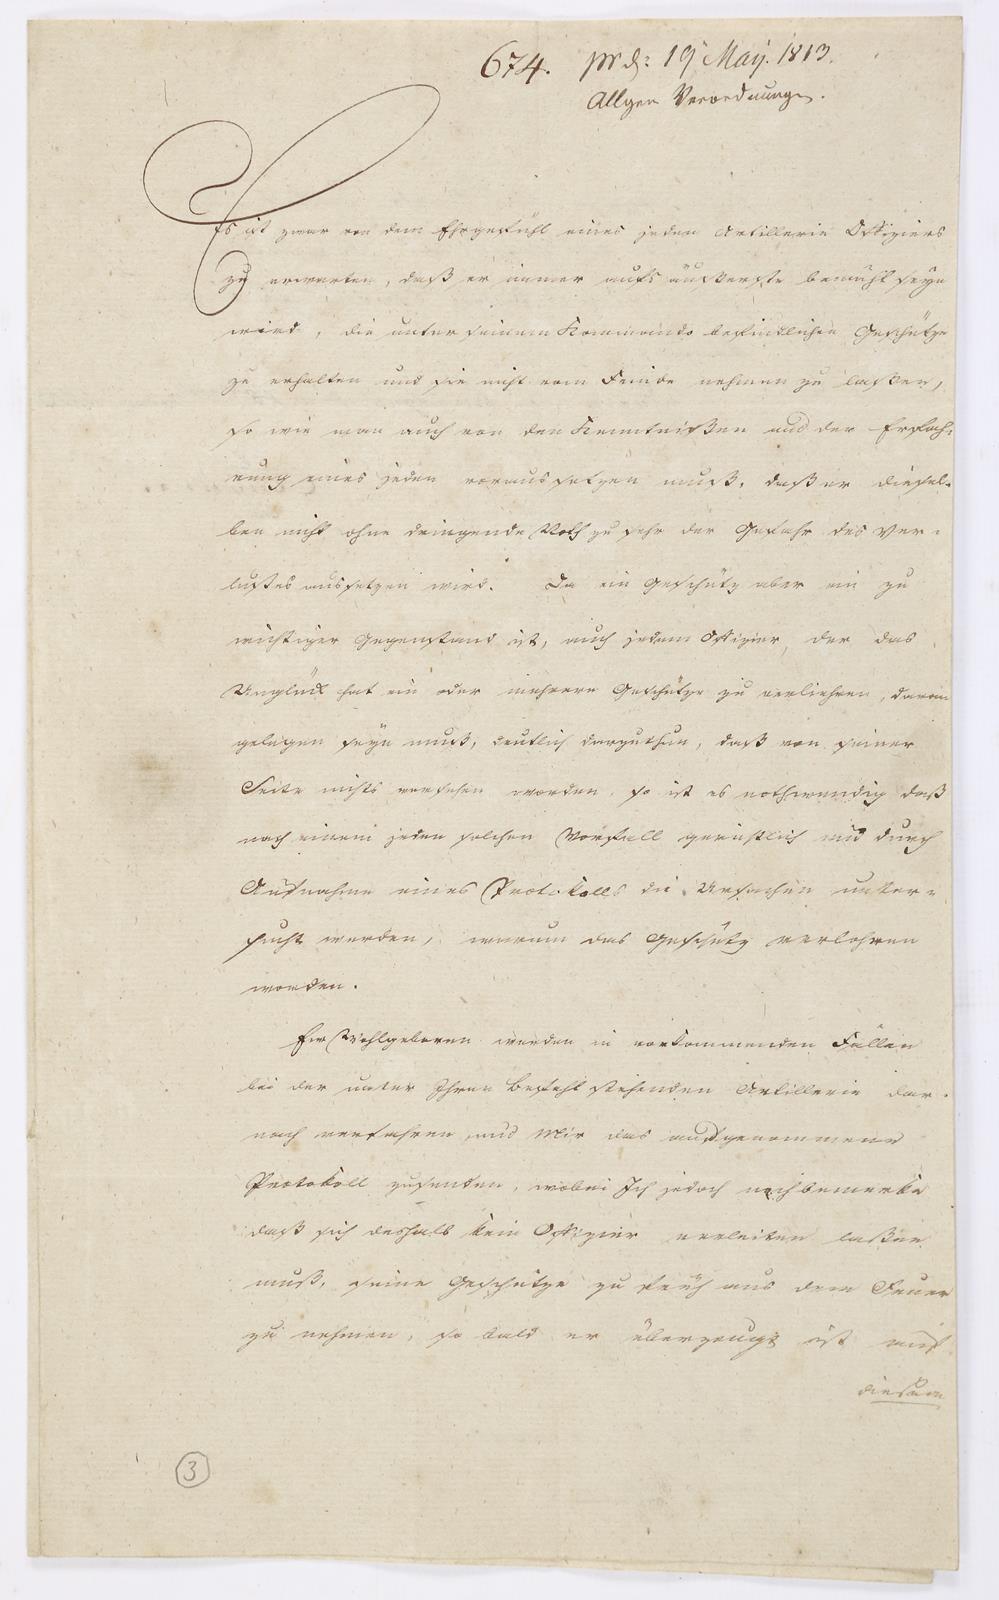 674. prd: 19 May. 1813.
Allgem Verordnungen.
Es ist zwar von dem Ehrgefühl eines jeden Artillerie Offiziers
zu erwarten, daß er immer aufs äußerste bemüht seyn
wird, die unter seinem Kommando befindlichen Geschütze
zu erhalten und sie nicht vom Feinde nehmen zu laßen,
so wie man auch von den Kenntnißen und der Erfah=
rung eines jeden voraus setzen muß, daß er diesel=
ben nicht ohne dringende Noth zu sehr der Gefahr des Ver=
lustes aussetzen wird. Da ein Geschütz aber ein zu
wichtiger Gegenstand ist, auch jedem Offizier, der das
Unglück hat ein oder mehrere Geschütze zu verliehren, daran
gelegen seyn muß, deutlich darzuthun, daß von seiner
Seite nichts versehen worden, so ist es nothwendig daß
nach einem jeden solchen Vorfall gerichtlich und durch
Aufnahme eines Protokolls die Ursachen unter=
sucht werden, warum das Geschütz verlohren
worden.
Ew Wohlgeboren werden in vorkommenden Fällen
bei der unter Ihren Befehl stehenden Artillerie dar=
nach verfahren und Mir das aufgenommene
Protokoll zusenden, wobei Ich jedoch noch bemerke
daß sich deshalb kein Offizier verleiten laßen
muß, seine Geschütze zu früh aus dem Feuer
zu nehmen, so bald er überzeugt ist mit
diesem
3